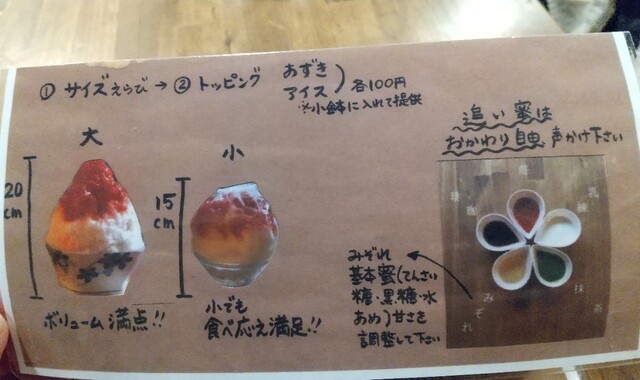 ① サイズえらび → ② トッピング
あずき
アイス
各100円
※小鉢に入れて提供
大
20
cm
ボリューム満点!!
小
15
cm
小でも
食べ応え満足!!
追い蜜は
おかわり自由 声かけ下さい
苺
練乳
抹茶
みぞれ
珈琲
みぞれ
基本蜜(てんさい
糖・黒糖・水
あめ)甘さを
調整して下さい